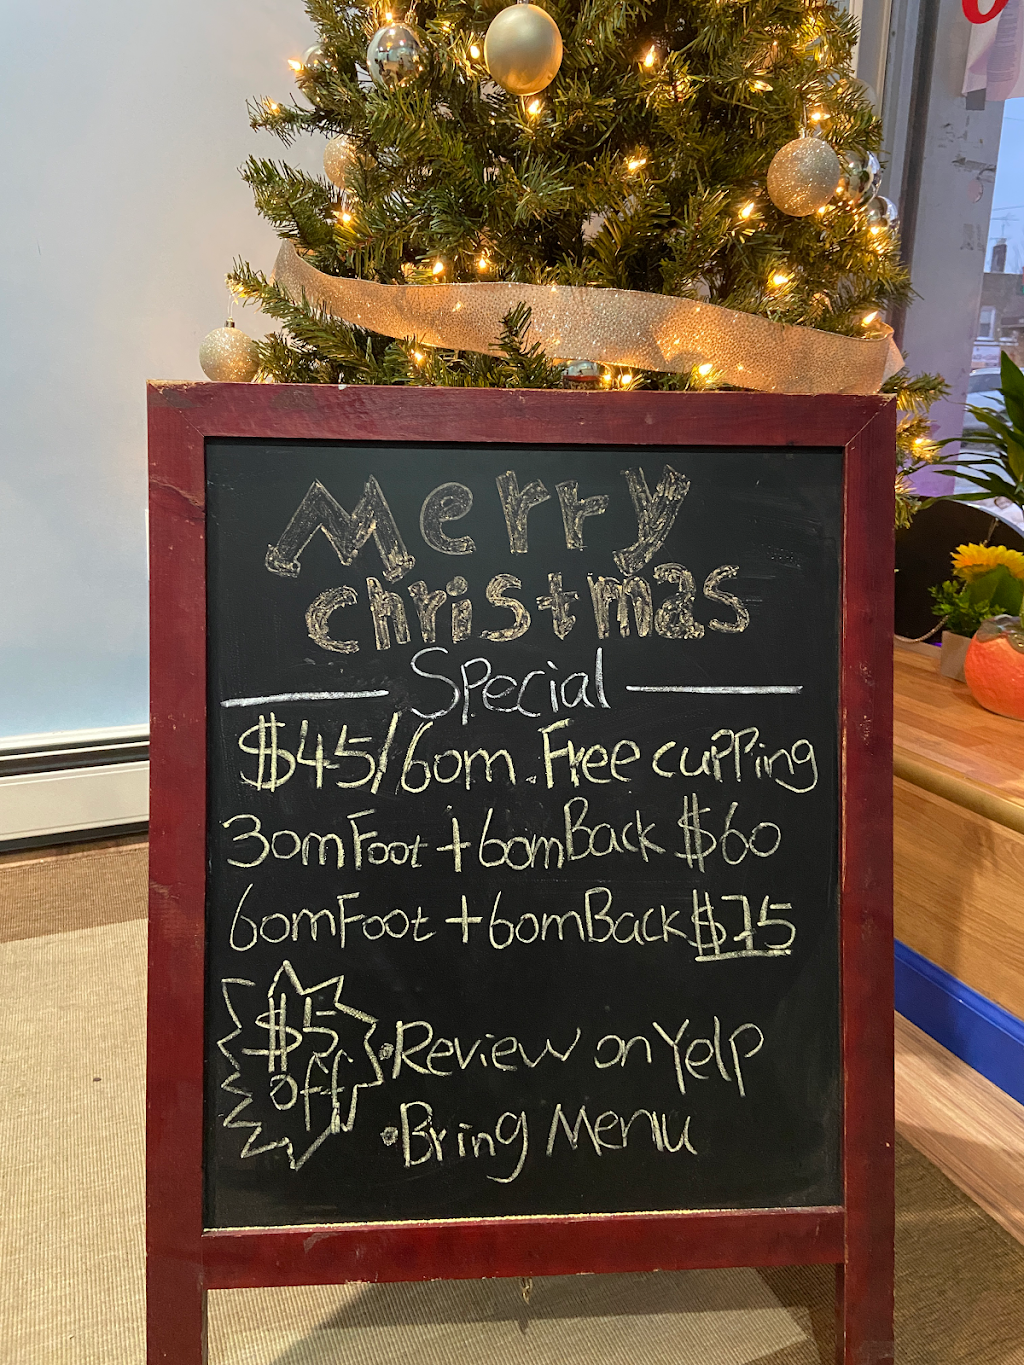 Merry
christmas
Special
$45/60m. Free cupping
30m Foot + 60m Back $60
60m Foot + 60m Back $75
$5
off
• Review on Yelp
• Bring Menu